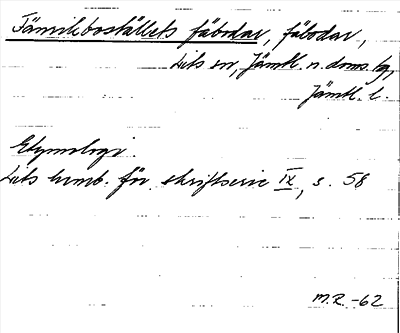 Fänriksboställets fäbodar, fäbodar,
Lits sn, Jämtl. n. doms. tg,
Jämtl. l.
Etymologi.
Lits hemb. för. skriftserie IX, s. 58
M.R. -62